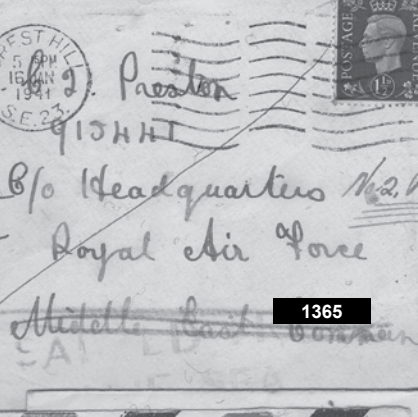 FOREST HILL
5 PM
16 JAN
1941
S.E.23
POSTAGE
1½
Preston
915441
C/o Headquarters No. 2.
Royal Air Force
Middle East Comman
1365